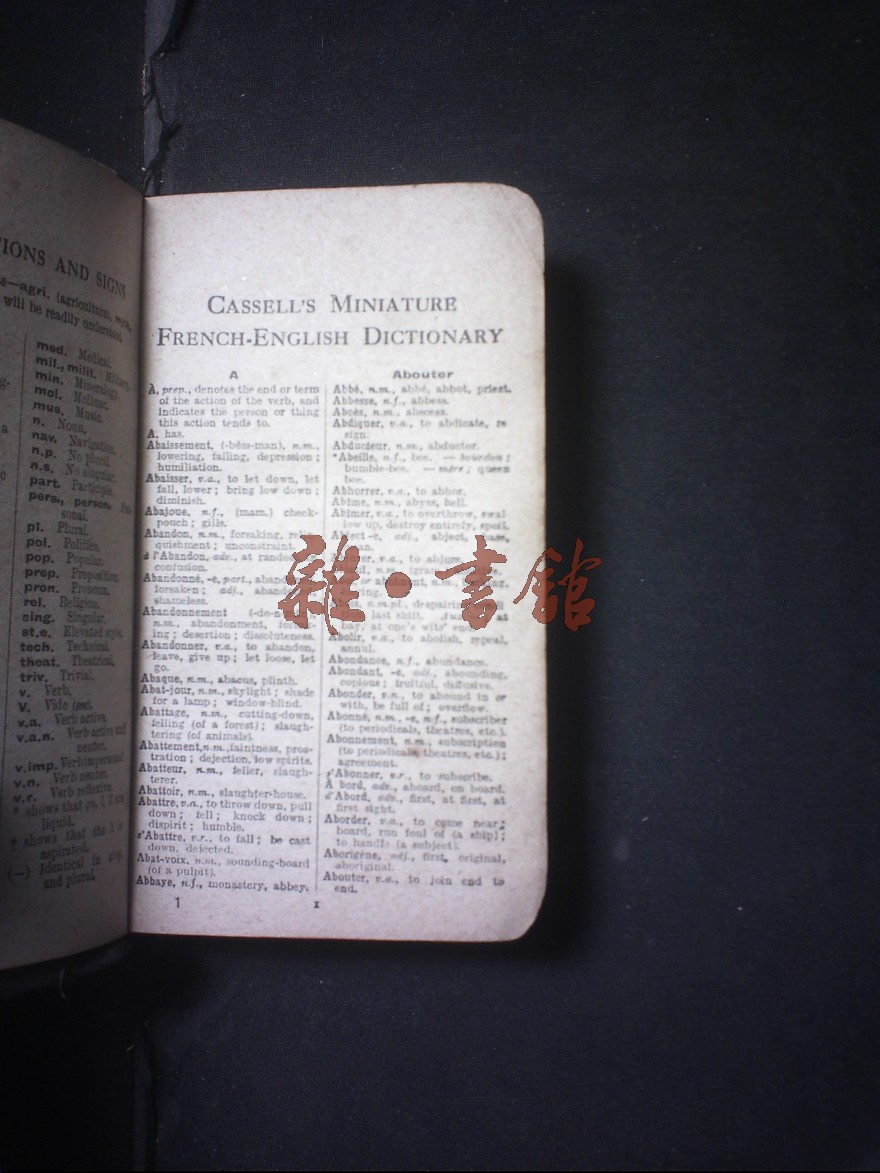 TIONS AND SIGNS
—agri. (agriculture),
will be readily understood.
med. Medical.
mil., milit. Military.
min. Mineralogy.
mol. Mollusc.
mus. Music.
n. Noun.
nav. Navigation.
n.p. No plural.
n.s. No singular.
part. Participle.
pers., person. Per-
sonal.
pl. Plural.
pol. Politics.
pop. Popular.
prep. Preposition.
pron. Pronoun.
rel. Religion.
sing. Singular.
st.e. Elevated style.
tech. Technical.
theat. Theatrical.
triv. Trivial.
v. Verb.
V. Vide (see).
v.a. Verb active.
v.a.n. Verb active and
neuter.
v.imp. Verb impersonal
v.n. Verb neuter.
v.r. Verb reflexive.
* shows that
liquid.
† shows that the h is
aspirated.
(—) Identical in sing.
and plural.
CASSELL'S MINIATURE
FRENCH-ENGLISH DICTIONARY
A
À, prep., denotes the end or term
of the action of the verb, and
indicates the person or thing
this action tends to.
A, has.
Abaissement, (-bèss-man), n.m.,
lowering, falling, depression;
humiliation.
Abaisser, v.a., to let down, let
fall, lower; bring low down;
diminish.
Abajoue, n.f., (mam.) cheek-
pouch; gills.
Abandon, n.m., forsaking, relin-
quishment; unconstraint.
à l'Abandon, adv., at random, in
confusion.
Abandonné, -e, part.,
forsaken; adj.,
shameless.
Abandonnement
n.m., abandonment,
ing; desertion; dissoluteness.
Abandonner, v.a., to abandon,
leave, give up; let loose, let
go.
Abaque, n.m., abacus, plinth.
Abat-jour, n.m., skylight; shade
for a lamp; window-blind.
Abattage, n.m., cutting-down,
felling (of a forest); slaugh-
tering (of animals).
Abattement, n.m., faintness, pros-
tration; dejection, low spirits.
Abatteur, n.m., feller, slaugh-
terer.
Abattoir, n.m., slaughter-house.
Abattre, v.a., to throw down, pull
down; fell; knock down;
dispirit; humble.
s'Abattre, v.r., to fall; be cast
down, dejected.
Abat-voix, n.m., sounding-board
(of a pulpit).
Abbaye, n.f., monastery, abbey.
Abouter
Abbé, n.m., abbé, abbot, priest.
Abbesse, n.f., abbess.
Abcès, n.m., abscess.
Abdiquer, v.a., to abdicate, re
sign.
Abducteur, n.m., abductor.
*Abeille, n.f., bee. — bourdon;
bumble-bee. — mère; queen
bee.
Abhorrer, v.a., to abhor.
Abîme, n.m., abyss, hell.
Abîmer, v.a., to overthrow, swal
low up, destroy entirely, spoil.
Abject -e, adj., abject,
v.a., to abjure.
n.m.pl., despairing
last shift.
bay, at one's wits' end.
Abolir, v.a., to abolish, repeal,
annul.
Abondance, n.f., abundance.
Abondant, -e, adj., abounding,
copious; fruitful, diffusive.
Abonder, v.n., to abound in or
with, be full of; overflow.
Abonné, n.m., -e, n.f., subscriber
(to periodicals, theatres, etc.).
Abonnement, n.m., subscription
(to periodicals, theatres, etc.);
agreement.
s'Abonner, v.r., to subscribe.
À bord, adv., aboard, on board.
d'Abord, adv., first, at first, at
first sight.
Aborder, v.a., to come near;
board, run foul of (a ship);
to handle (a subject).
Aborigène, adj., first, original,
aboriginal.
Abouter, v.a., to join end to
end.
1
I
雜·書館